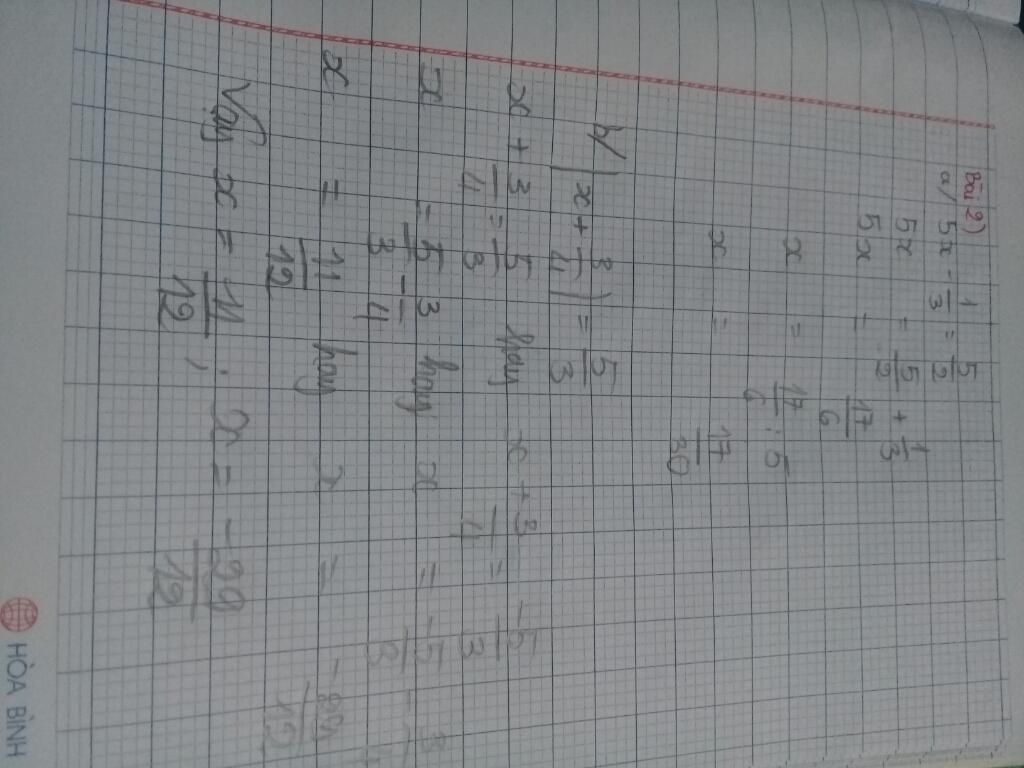 Bài 2)
a/ 5x - 1/3 = 5/2
5x = 5/2 + 1/3
5x = 17/6
x = 17/6 : 5
x = 17/30
b/ |x + 3/4| = 5/3
x + 3/4 = 5/3 hay x + 3/4 = -5/3
x = 5/3 - 3/4 hay x = -5/3 - 3/4
x = 11/12 hay x = -29/12
Vậy x = 11/12 ; x = -29/12
HÒA BÌNH